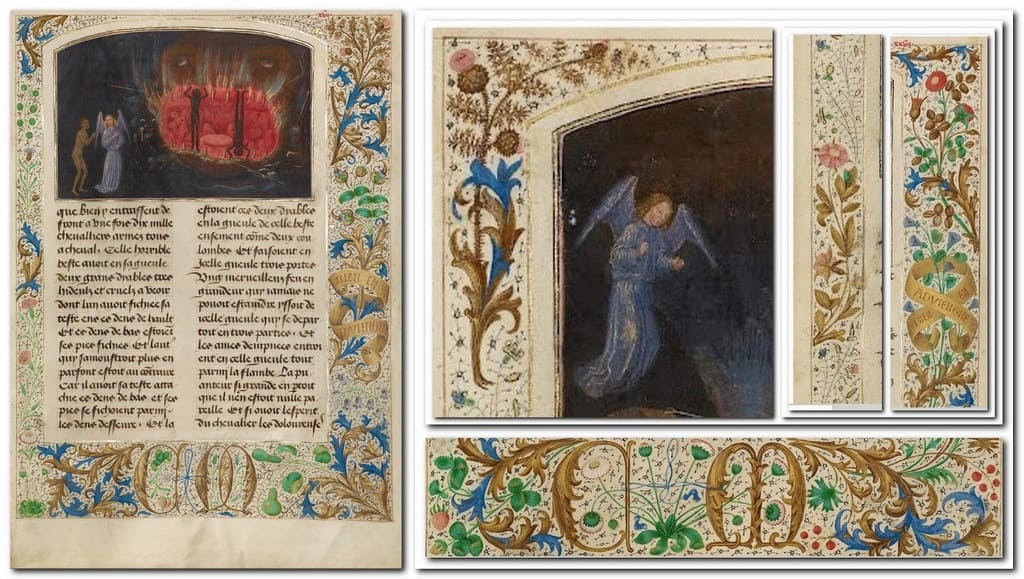 que bien y entrassent de
front a une fois dix mille
chevalliers armez tous
a cheval. Celle horrible
beste avoit en sa gueule
deux grans diables tres
hideulx et cruelz a veoir
dont lun avoit fichee sa
teste es dens de hault
Et es dens de bas estoient
ses pies fichies. Et laut
quy samonstroit plus en
parfont estoit au contraire
Car il avoit sa teste atta
chie es dens de bas et ses
pies se fichoient parmi
les dens desseure. Et la
estoient ces deux diables
en la gueule de celle beste
ensement come deux cou
lombes. Et faisoient en
jcelle gueule trois portes
Ung merveilleux feu en
grandeur quy jamais ne
povoit estaindre yssoit de
celle gueule quy se depar
toit en trois parties. Et
les ames dempnees entroi
ent en celle gueule tout
parmi la flambe. La pu
anteur si grande en
que il nen estoit nulle pa
reille. Et si avoit lesperit
du chevalier les doloureuses
BIEN EN
ADVIENGNE
C M
ADVIENGNE
BIEN EN
C M